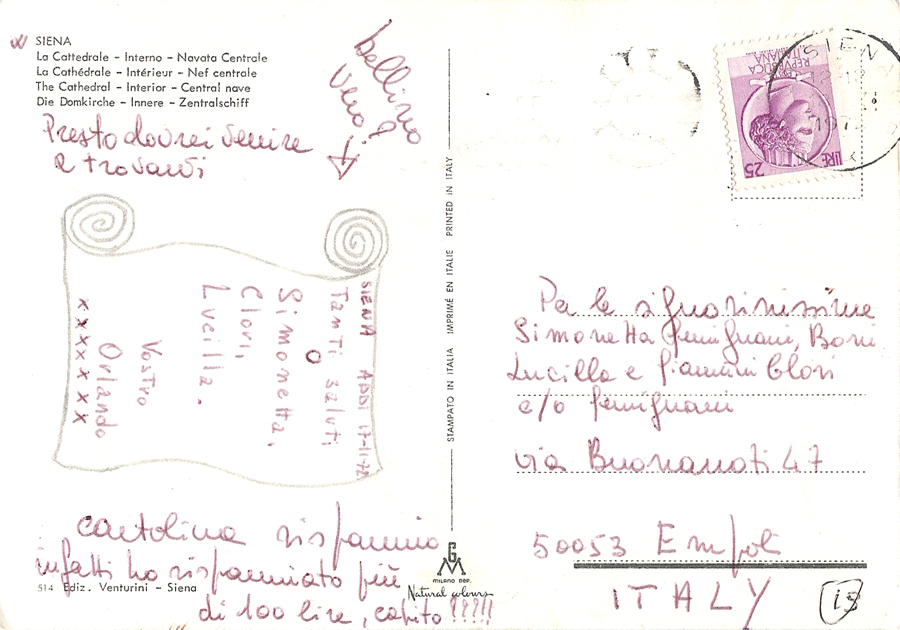 W SIENA
La Cattedrale – Interno – Navata Centrale
La Cathédrale – Intérieur – Nef centrale
The Cathedral – Interior – Central nave
Die Domkirche – Innere – Zentralschiff
bellino
vero?
Presto dovrei venire
a trovarvi
SIENA ADDI 17-11-72
Tanti saluti
O
Simonetta,
Clori,
Lucilla.
Vostro
Orlando
x x x x x x x
cartolina risparmio
infatti ho risparmiato più
di 100 lire, capito!!!!!
514 Ediz. Venturini – Siena
STAMPATO IN ITALIA IMPRIMÉ EN ITALIE PRINTED IN ITALY
GM
MILANO DEP.
Natural colours
REPVBBLICA
ITALIANA
LIRE 25
SIENA
Per le signorinissime
Simonetta Gemignani, Borri
Lucilla e Giannini Clori
c/o Gemignani
via Buonarroti 47
50053 Empoli
ITALY
is